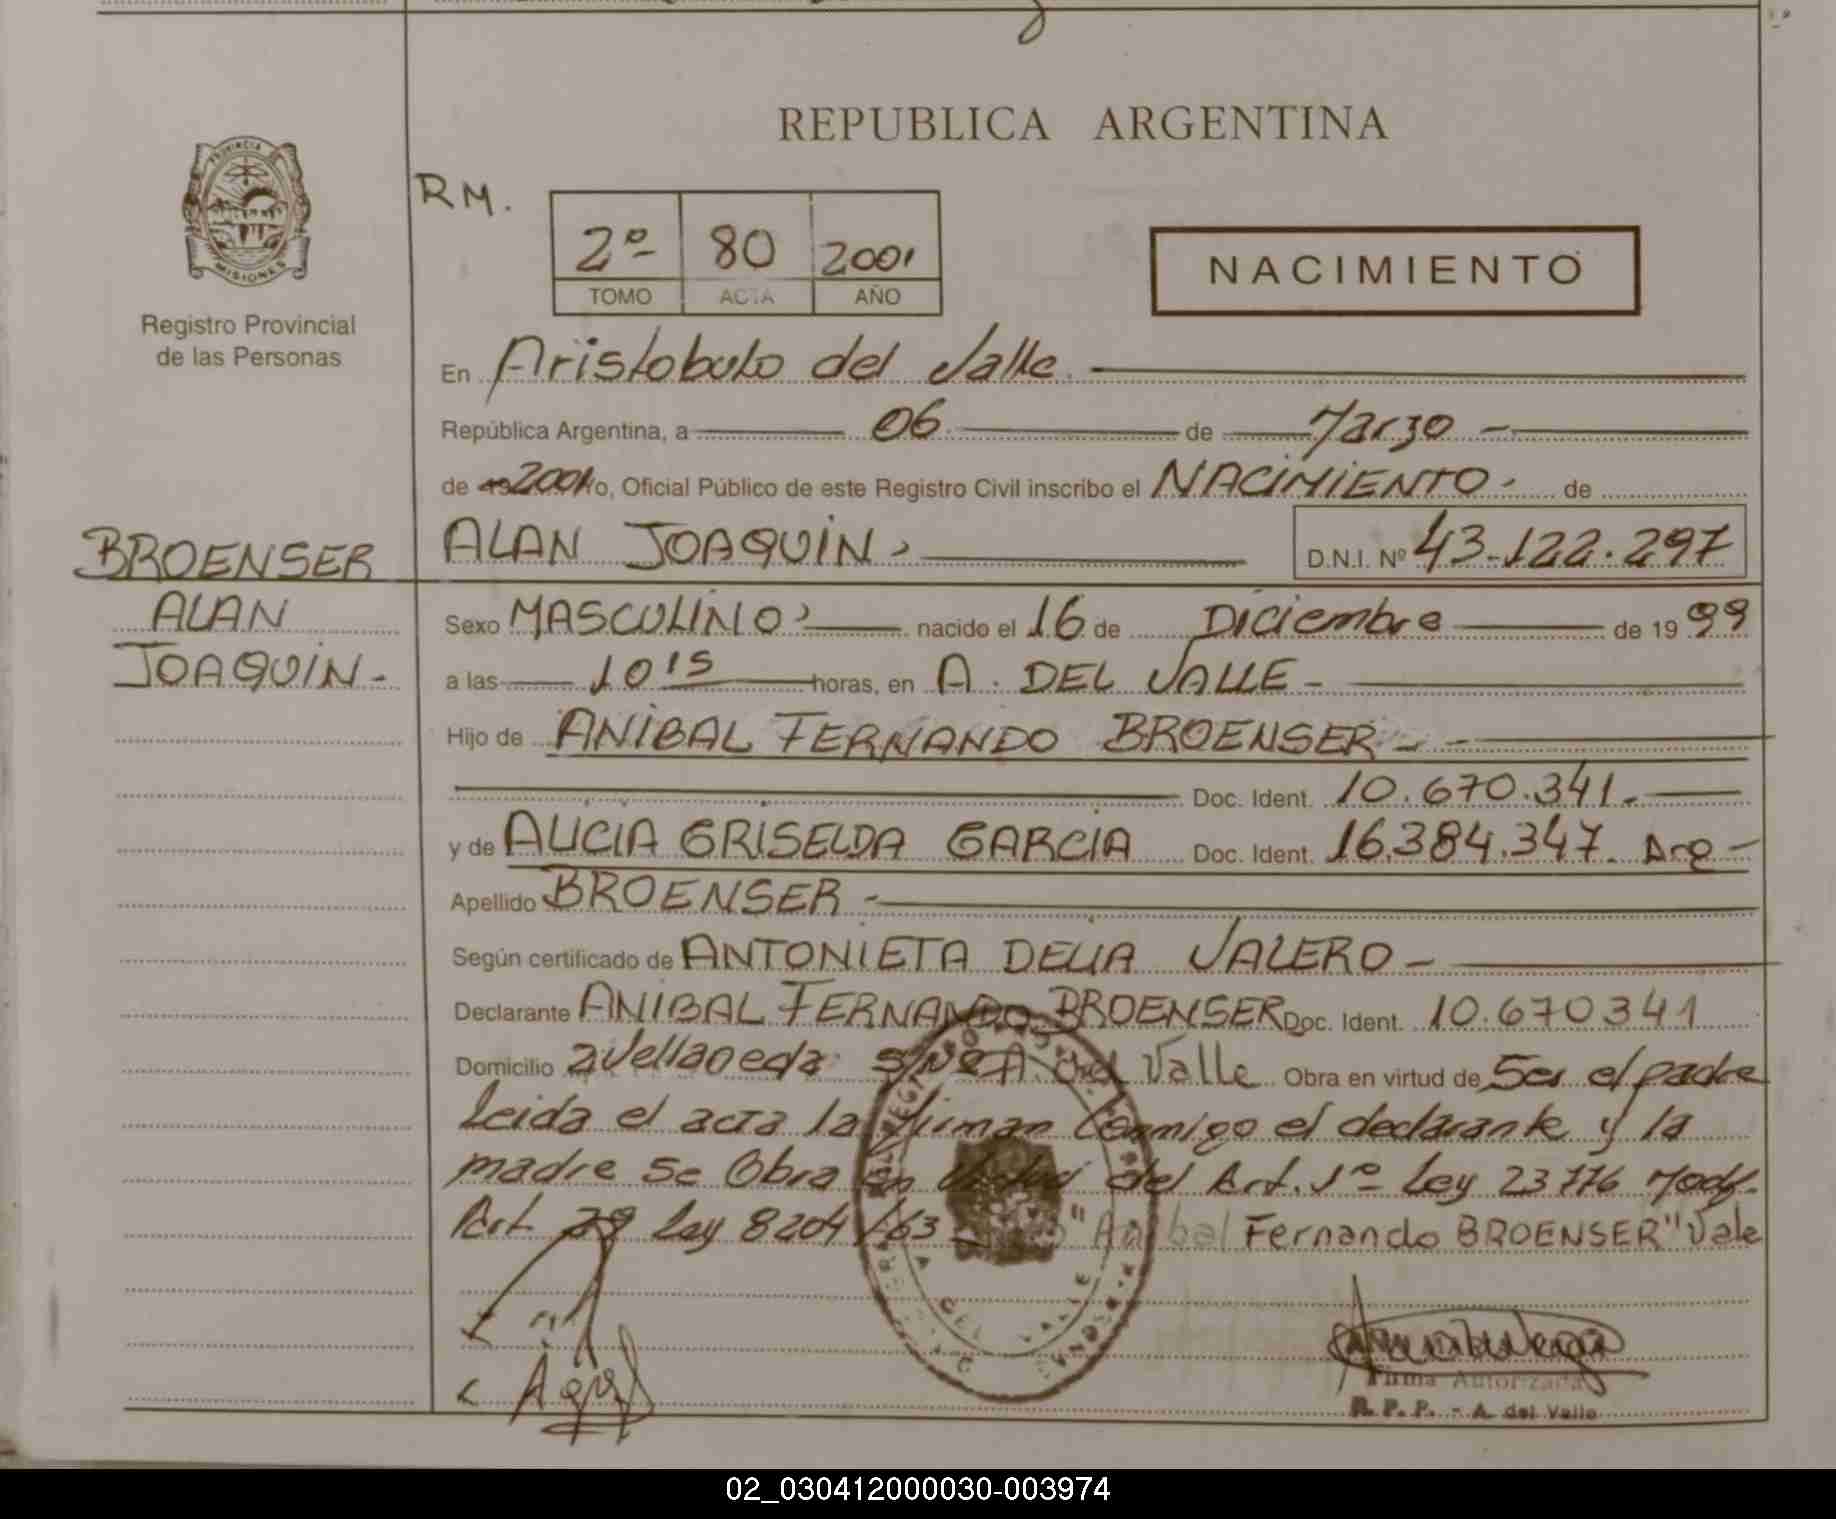 REPUBLICA ARGENTINA
PROVINCIA DE
MISIONES
Registro Provincial
de las Personas
RM.
2º 80 2001
TOMO ACTA AÑO
NACIMIENTO
En Aristobulo del Valle
República Argentina, a 06 de Marzo
de 2001 Yo, Oficial Público de este Registro Civil inscribo el NACIMIENTO de
BROENSER
ALAN
JOAQUIN.-
ALAN JOAQUIN
D.N.I. Nº 43.122.297
Sexo MASCULINO nacido el 16 de Diciembre de 1999
a las 10 15 horas, en A. DEL VALLE
Hijo de ANIBAL FERNANDO BROENSER
Doc. Ident. 10.670.341
y de ALICIA GRISELDA GARCIA Doc. Ident. 16.384.347. Arg
Apellido BROENSER
Según certificado de ANTONIETA DELIA VALERO
Declarante ANIBAL FERNANDO BROENSER Doc. Ident. 10.670341
Domicilio avellaneda s/Nº A. del Valle Obra en virtud de Ser el padre
Leida el acta la firman Conmigo el declarante y la
madre se Obra en virtud del Art. 1º Ley 23776 Modf.
Art. 29 Ley 8204/63 "Anibal Fernando BROENSER" Vale
A DEL VALLE
Firma Autorizada
R. P. P. - A. del Valle
02_030412000030-003974